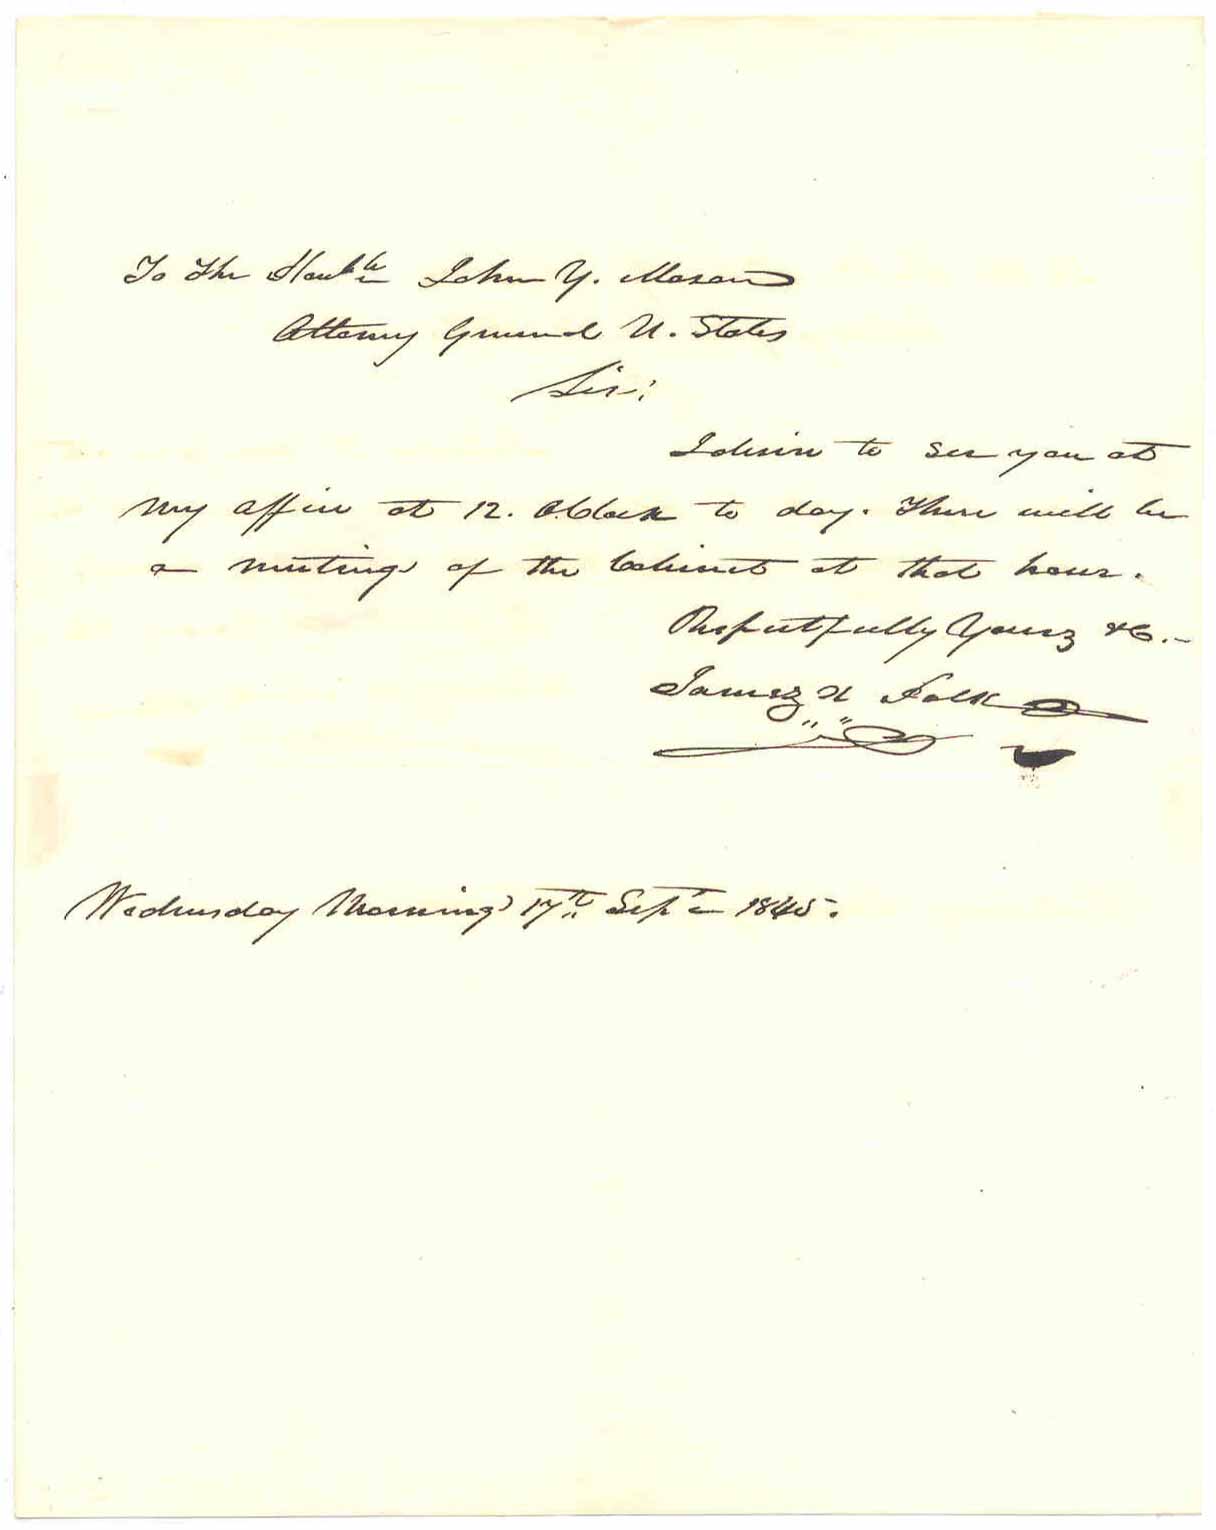 To The Honble John Y. Mason
Attorney General U. States
Sir:
I desire to see you at
my office at 12. O.Clock to day. There will be
a meeting of the Cabinet at that hour.
Respectfully Yours &C.-
James K Polk
Wednesday Morning 17th Sept 1845.